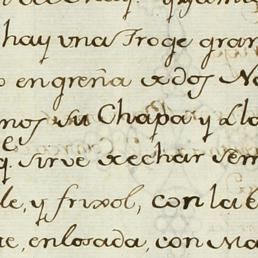 hay una Troge gran
engreña de dos
nos su Chapa y Lla
q. sirve de echar sem
le, y frixol, con la
enlosada, con Ma